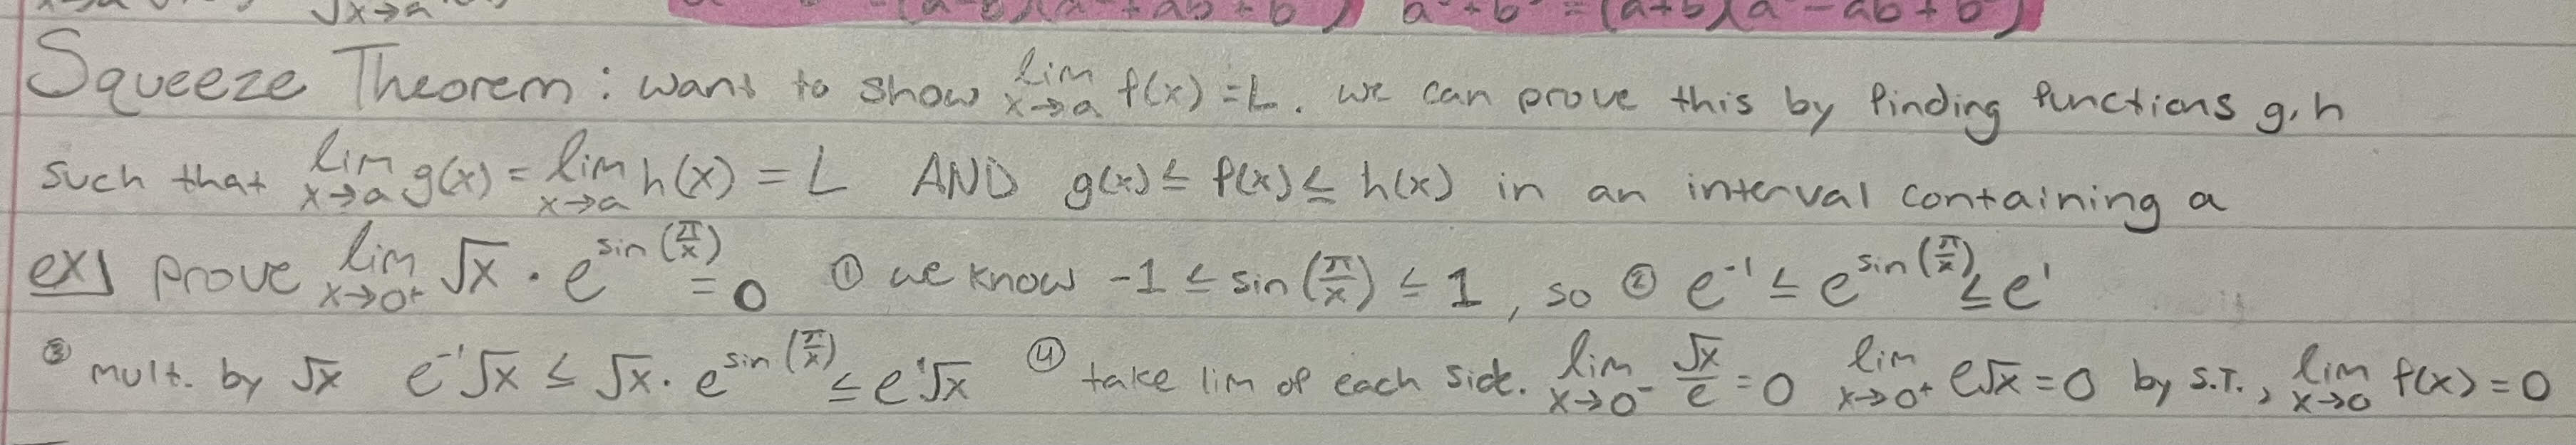 √x→a
= (a-b)(a + ab + b ) a + b = (a+b)(a - ab + b )
Squeeze Theorem: want to show lim x→a f(x)=L. we can prove this by finding functions g,h
such that lim x→a g(x) = lim x→a h(x) = L AND g(x) ≤ f(x) ≤ h(x) in an interval containing a
ex] prove lim x→0⁺ √x · e^sin(π/x) = 0 ① we know -1 ≤ sin(π/x) ≤ 1, so ② e⁻¹ ≤ e^sin(π/x) ≤ e¹
③ mult. by √x e⁻¹√x ≤ √x · e^sin(π/x) ≤ e¹√x ④ take lim of each side. lim x→0⁻ √x/e = 0 lim x→0⁺ e√x = 0 by S.T., lim x→0 f(x) = 0